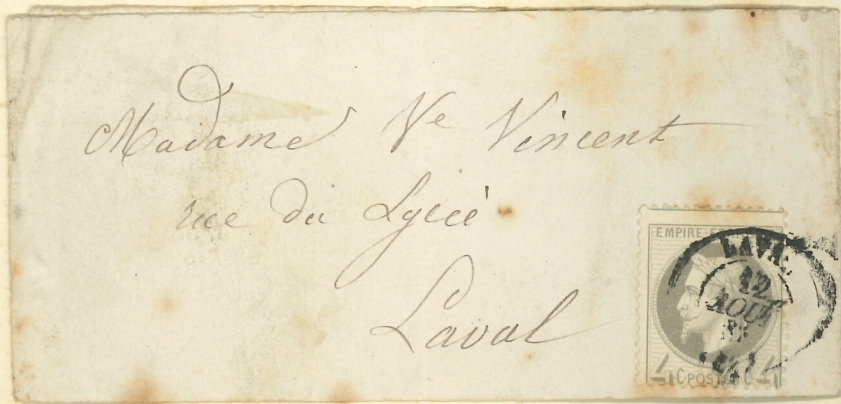 Madame Ve Vincent
rue du Lycée
Laval
EMPIRE
LAVAL
12
AOUT
4 C POSTES C 4